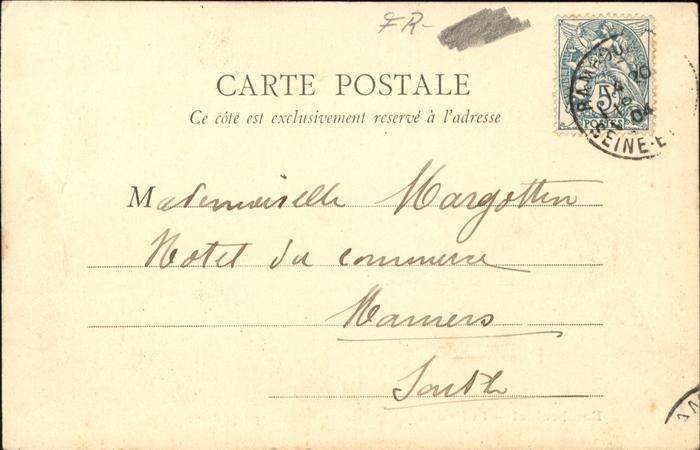 FR-
CARTE POSTALE
Ce côté est exclusivement reservé à l'adresse
5
POSTES
RAMBOU
20
04
SEINE-E
Mademoiselle Margottin
Hotel du commerce
Mamers
Sarthe